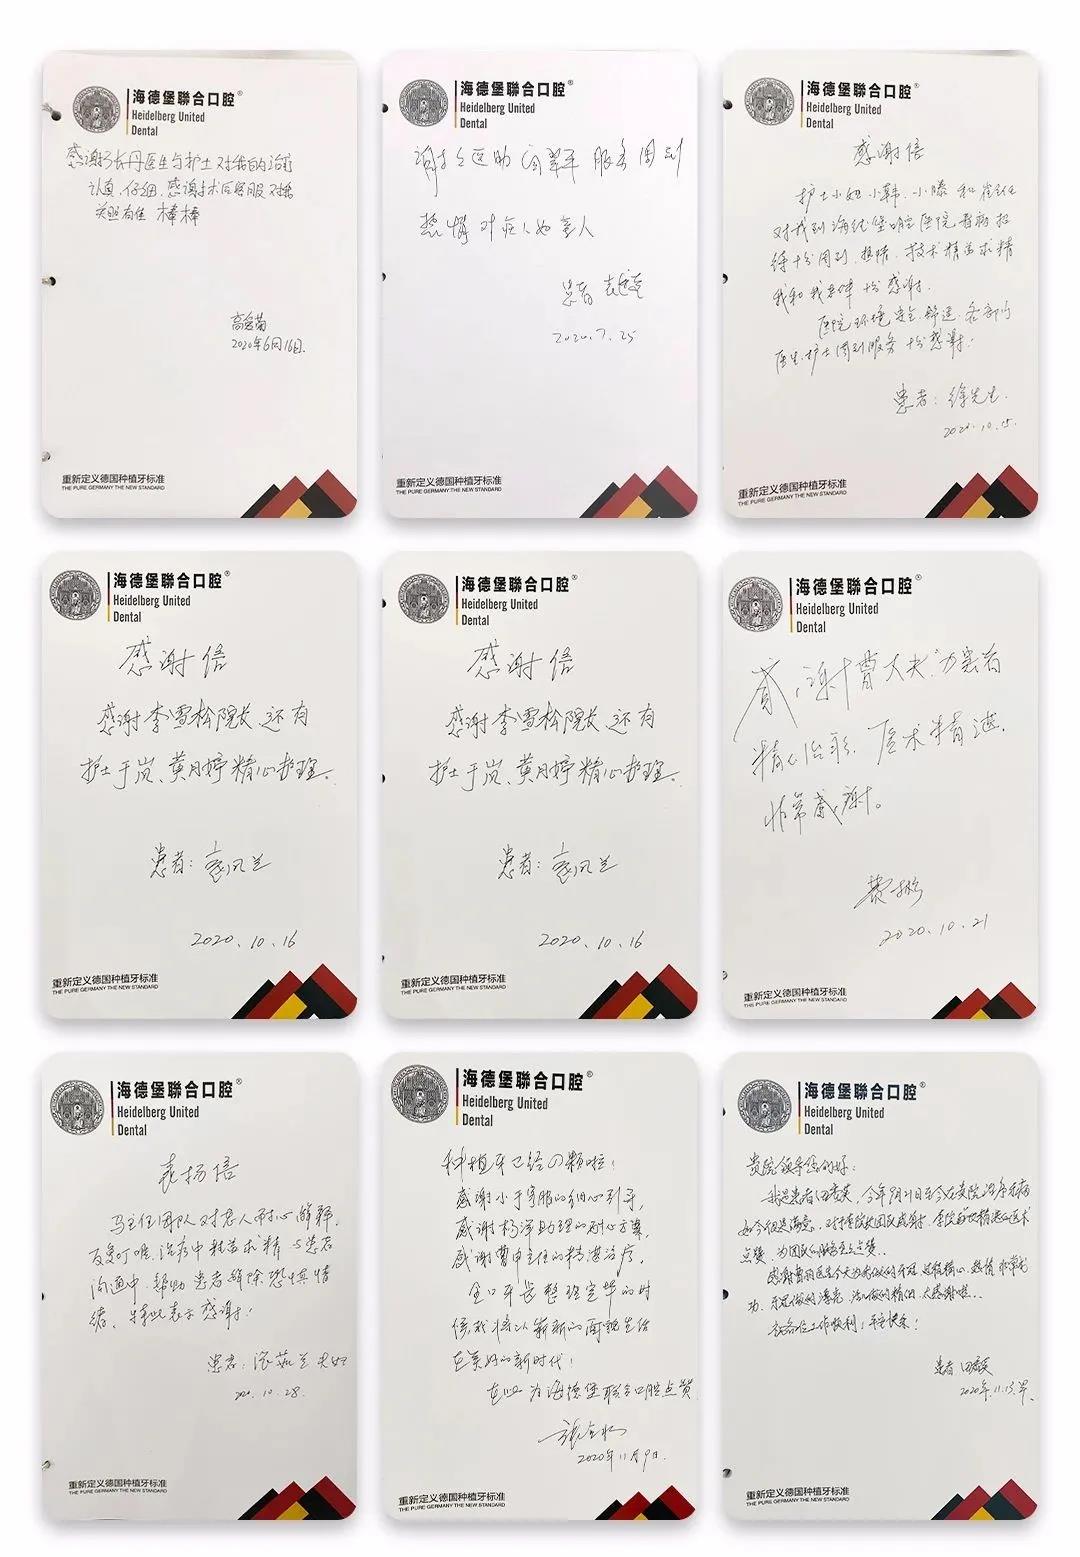 海德堡聯合口腔®
Heidelberg United
Dental
感谢张丹医生与护士对我的治疗
认真、仔细、感谢技术 客服对我
关照有佳 棒棒
高
2020年6月16日.
重新定义德国种植牙标准
THE PURE GERMANY THE NEW STANDARD
海德堡聯合口腔®
Heidelberg United
Dental
谢谢医助 翠平 服务周到
热情对病人如亲人
患者
2020.7.25
重新定义德国种植牙标准
THE PURE GERMANY THE NEW STANDARD
海德堡聯合口腔®
Heidelberg United
Dental
感谢信
护士小妞小韩、小滕和崔主任
对我到海德堡口腔医院看病招
待十分周到、热情、技术精益求精
我和我老伴十分感谢.
医院环境安全、舒适、各部门
医生、护士周到服务十分感谢!
患者:徐先生.
2020.10.15.
重新定义德国种植牙标准
THE PURE GERMANY THE NEW STANDARD
海德堡聯合口腔®
Heidelberg United
Dental
感谢信
感谢李雪松院长、还有
护士于岚、黄月婷精心护理。
患者: 凤兰
2020、10、16
重新定义德国种植牙标准
THE PURE GERMANY THE NEW STANDARD
海德堡聯合口腔®
Heidelberg United
Dental
感谢信
感谢李雪松院长、还有
护士于岚、黄月婷精心护理。
患者: 凤兰
2020、10、16
重新定义德国种植牙标准
THE PURE GERMANY THE NEW STANDARD
海德堡聯合口腔®
Heidelberg United
Dental
感谢曹大夫为患者
精心治疗、医术精湛.
非常感谢。
2020.10.21
重新定义德国种植牙标准
THE PURE GERMANY THE NEW STANDARD
海德堡聯合口腔®
Heidelberg United
Dental
表扬信
马主任团队对患人耐心解释,
反复叮嘱,治疗中精益求精与患者
沟通中,帮助患者解除恐惧情
绪、特此表示感谢!
患者:
2020.10.28.
重新定义德国种植牙标准
THE PURE GERMANY THE NEW STANDARD
海德堡聯合口腔®
Heidelberg United
Dental
种植牙已经 颗啦!
感谢小于客服的细心引导,
感谢杨洋助理的耐心方案,
感谢曹 主任的精湛治疗.
全口牙齿整理完毕的时
候,我将以崭新的面貌生活
在美好的新时代!
在此为海德堡联合口腔点赞
2020年11月9日.
重新定义德国种植牙标准
THE PURE GERMANY THE NEW STANDARD
海德堡聯合口腔®
Heidelberg United
Dental
贵院领导您们好:
我是患者田 英,今年9月21日至今在贵院治疗牙病
点赞、为团队的服务态度点赞.
祝各位工作顺利!平安快乐!
患者 田 英
2020年.11.13.
重新定义德国种植牙标准
THE PURE GERMANY THE NEW STANDARD